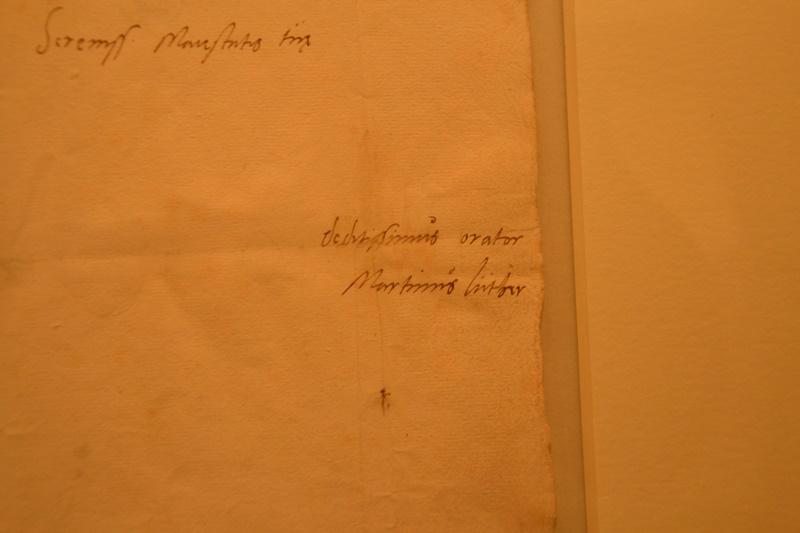 Sereniss. Maiestatis tuę
deditissimus orator
Martinus Luther